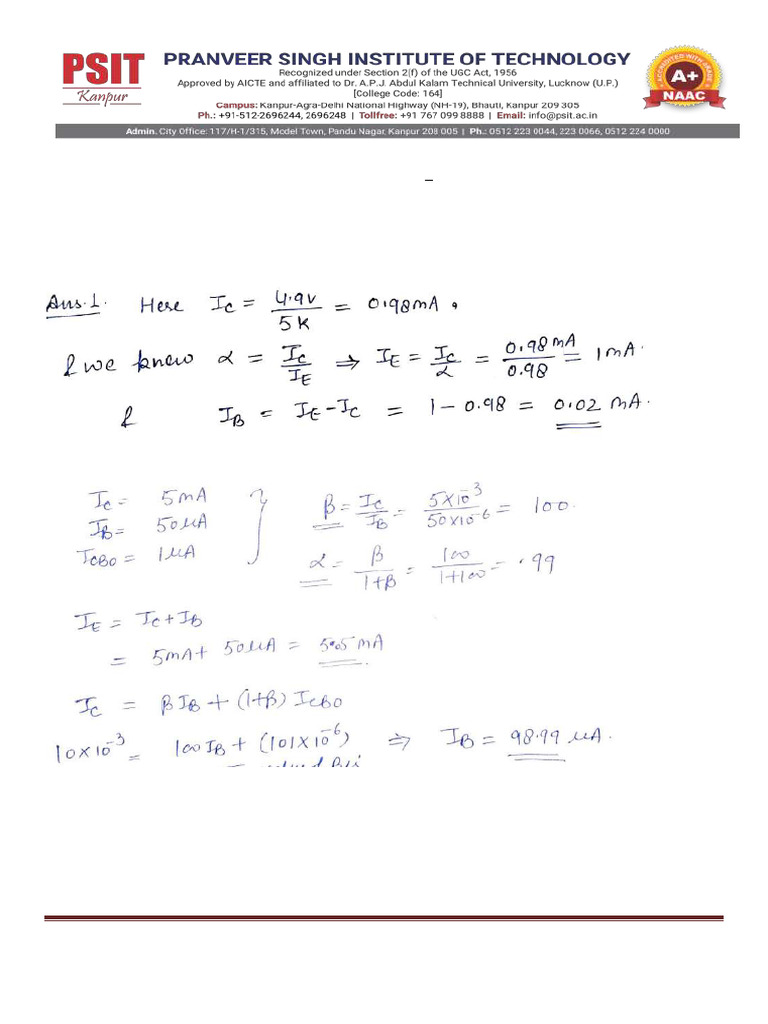 PSIT
Kanpur
PRANVEER SINGH INSTITUTE OF TECHNOLOGY
Recognized under Section 2(f) of the UGC Act, 1956
Approved by AICTE and affiliated to Dr. A.P.J. Abdul Kalam Technical University, Lucknow (U.P.)
[College Code: 164]
Campus: Kanpur-Agra-Delhi National Highway (NH-19), Bhauti, Kanpur 209 305
Ph.: +91-512-2696244, 2696248 | Tollfree: +91 767 099 8888 | Email: info@psit.ac.in
ACCREDITED WITH GRADE
A+
NAAC
Admin. City Office: 117/H-1/315, Model Town, Pandu Nagar, Kanpur 208 005 | Ph.: 0512 223 0044, 223 0066, 0512 224 0000
–
Ans.1. Here I_C = 4.9V / 5K = 0.98mA.
& we know α = I_C / I_E ⇒ I_E = I_C / α = 0.98mA / 0.98 = 1mA.
& I_B = I_E - I_C = 1 - 0.98 = 0.02 mA.
I_C = 5mA
I_B = 50μA
I_CBO = 1μA
β = I_C / I_B = 5×10⁻³ / 50×10⁻⁶ = 100.
α = β / 1+β = 100 / 1+100 = .99
I_E = I_C + I_B
= 5mA + 50μA = 5.05 mA
I_C = βI_B + (1+β) I_CBO
10×10⁻³ = 100I_B + (101×10⁻⁶) ⇒ I_B = 98.99 μA.